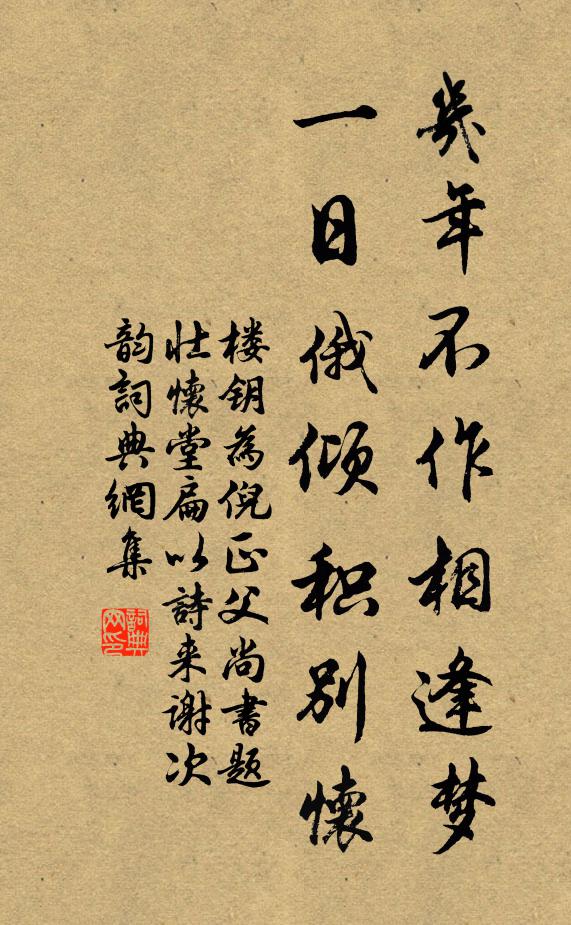 幾年不作相逢梦
一日俄倾积别懷
楼钥為倪正父尚書题
壮懷堂扁以詩来谢次
韵詞典網集
詞典网印